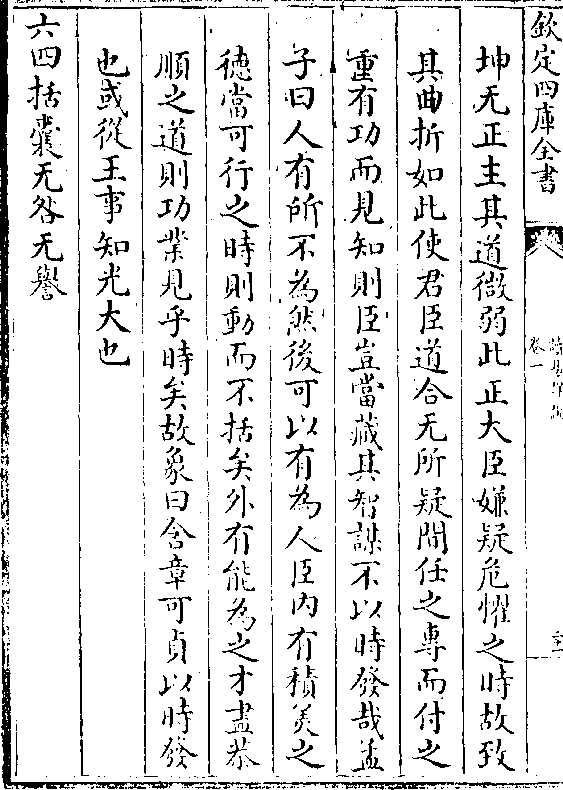 欽定四庫全書
卷一
坤无正主其道微弱此正大臣嫌疑危懼之時故致
其曲折如此使君臣道合无所疑間任之專而付之
重有功而見知則臣豈當藏其智謀不以時發哉孟
子曰人有所不為然後可以有為人臣内有積美之
徳當可行之時則動而不括矣外有能為之才盡恭
順之道則功業見乎時矣故象曰含章可貞以時發
也或從王事知光大也
六四括囊无咎无譽